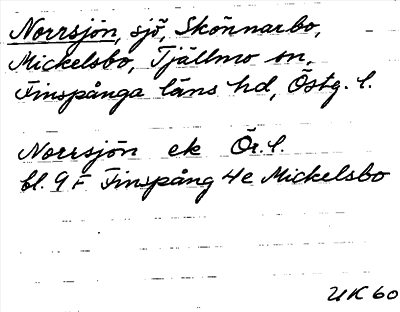 Norrsjön, sjö, Skönnarbo,
Mickelsbo, Tjällmo sn,
Finspånga läns hd, Östg. l.
Norrsjön ek Ör. l.
bl. 9 F Finspång 4e Mickelsbo
UK 60